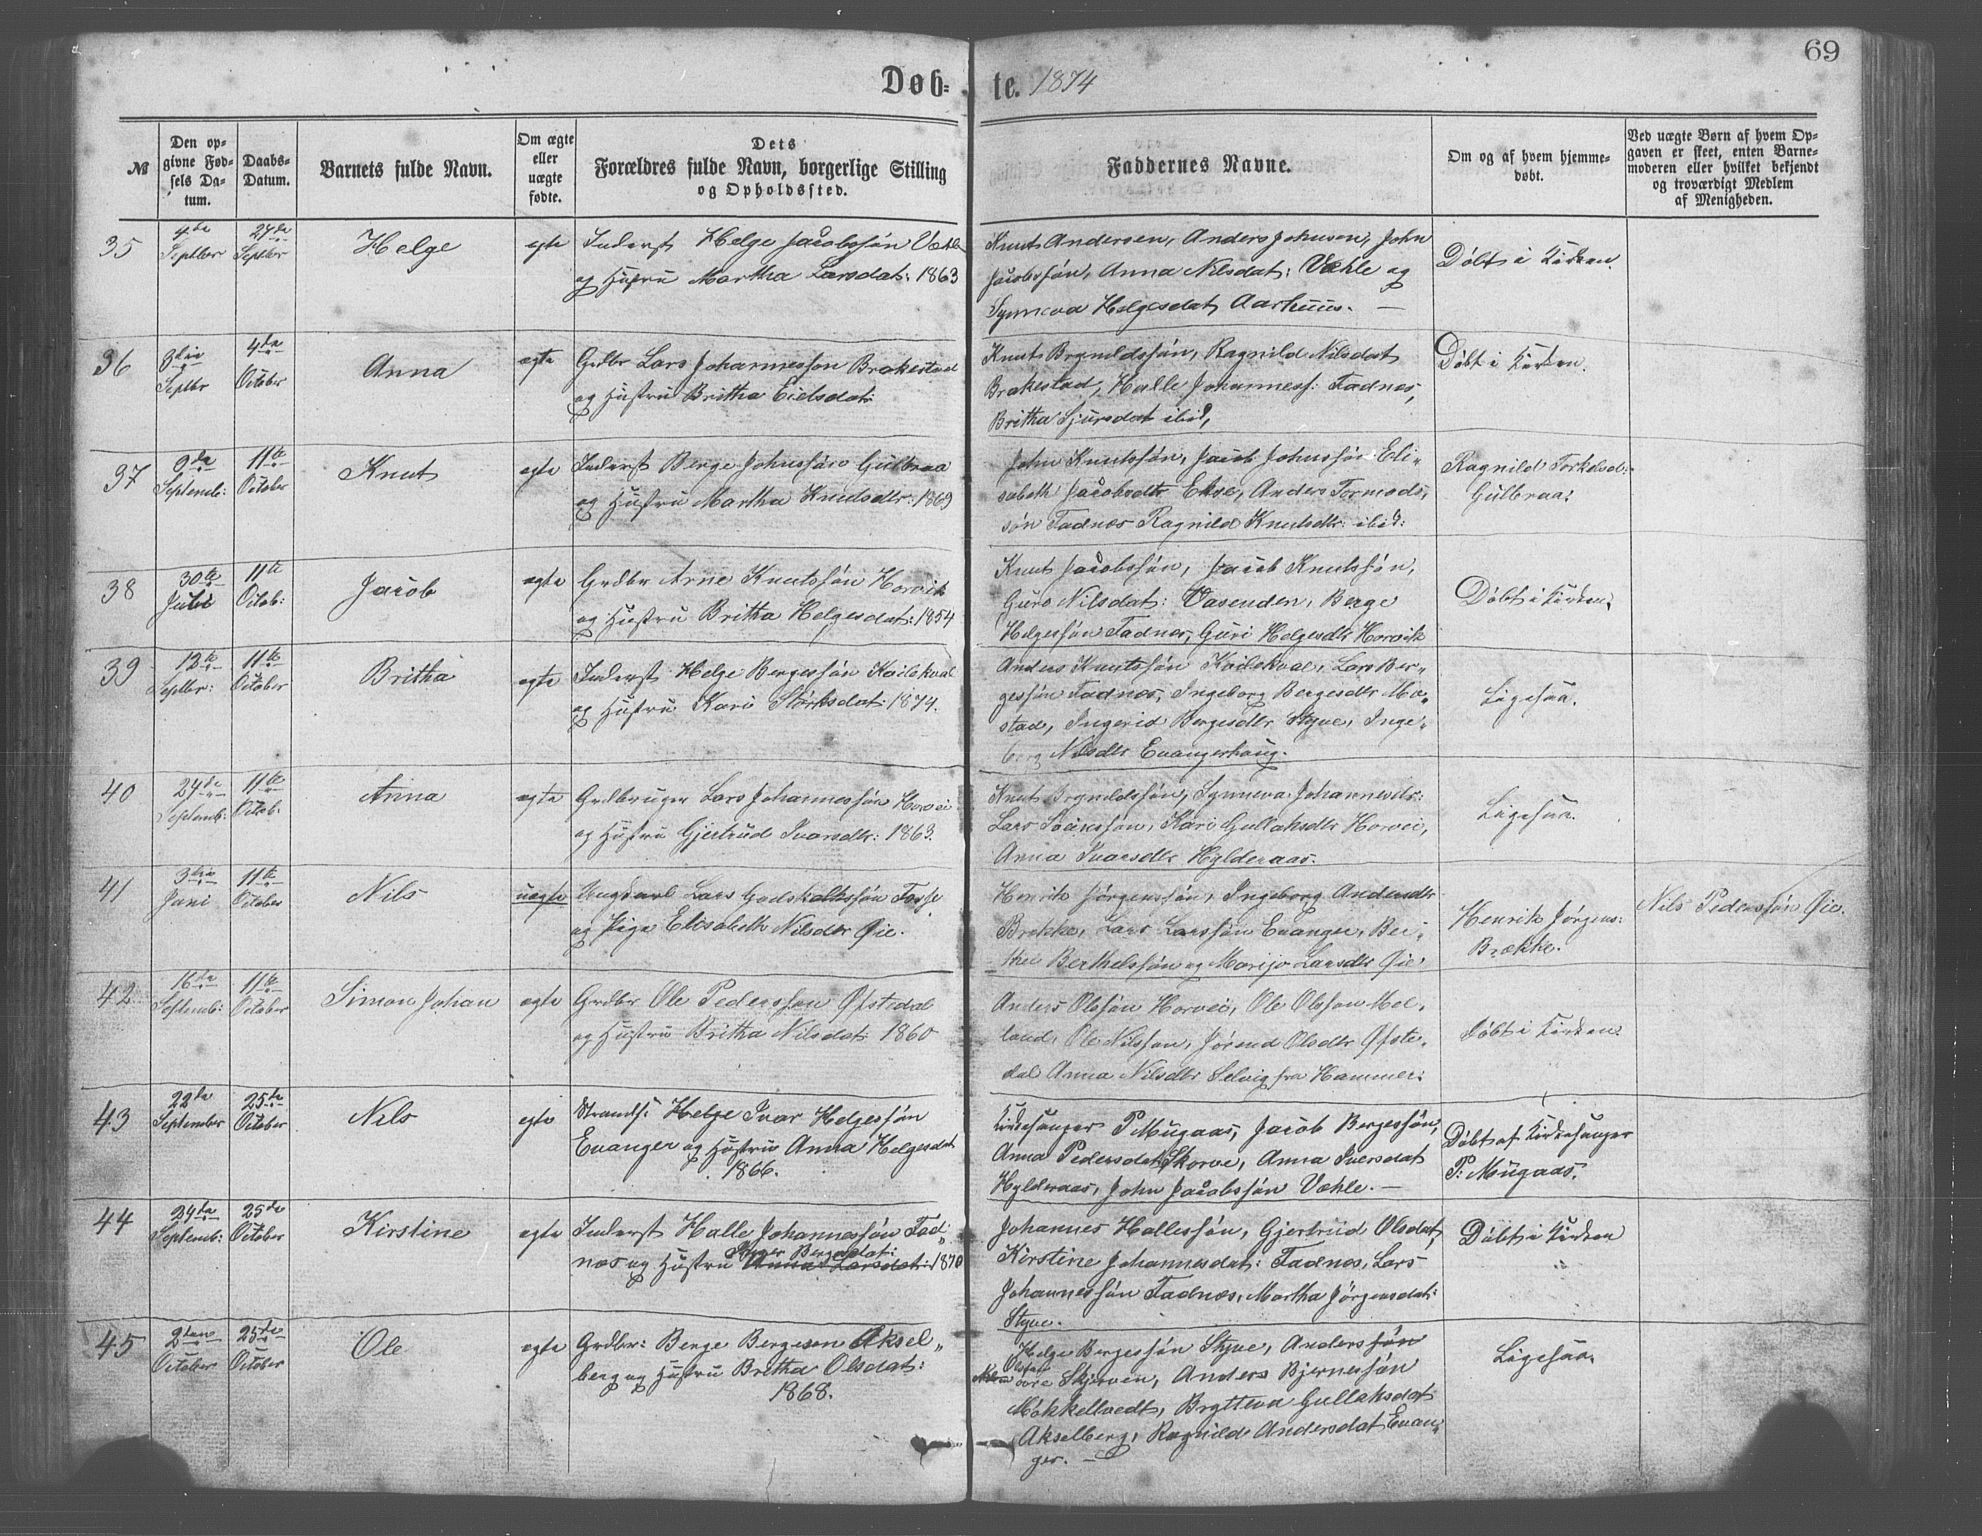 69
Døb= te. 1874
№
Den op-
givne Fød-
sels Da-
tum.
Daabs-
Datum.
Barnets fulde Navn.
Om ægte
eller
uægte
fødte.
Dets
Forældres fulde Navn, borgerlige Stilling
og Opholdssted.
Faddernes Navne.
Om og af hvem hjemme-
døbt.
Ved uægte Børn af hvem Op-
gaven er skeet, enten Barne-
moderen eller hvilket bekjendt
og troværdigt Medlem
af Menigheden.
35
4de
Septbr
27de
Septbr
Helge
egte
Inderst Helge Jacobssøn Væhle
og Hustru Martha Larsdat: 1863
Knut Andersen, Anders Johnsen, John
Jacobssøn, Anna Nilsdat: Væhle og
Synneva Helgesdat Aarhuus. —
Døbt i Kirken.
36
3die
Septbr
4de
October
Anna
egte
Grdbr Lars Johannessøn Brakestad
og Hustru Britha Eielsdat:
Knut Brynildssøn, Ragnild Nilsdat
Brakestad, Halle Johanness: Fadnes,
Britha Sjursdat ibid,
Døbt i Kirken.
37
9de
Septemb:
11te
October
Knut
egte
Inderst Berge Johnssøn Gulbraa
og Hustru Martha Knutsdtr: 1869
John Knutssøn, Jacob Johnssøn Eli-
sabeth Jacobsdtr Ekse, Anders Tormods-
søn Fadnes Ragnild Knutsdtr: ibid:
Ragnild Torkelsd:
Gulbraa:
38
30te
Julii
11te
Octob:
Jacob
egte
Grdbr Arne Knutssøn Horvik
og Hustru Britha Helgesdat: 1854
Knut Jacobssøn, Jacob Knutssøn,
Guro Nilsdat: Vasenden, Berge
Helgessøn Fadnes, Guri Helgesdtr Horvik
Døbt i Kirken.
39
12te
Septbr:
11te
October
Britha
egte
Inderst Helge Bergessøn Kvilekval
og Hustru Kari Størksdat: 1874.
Anders Knutssøn Kvilekval, Lars Ber-
gessøn Fadnes, Ingeborg Bergesdtr Mo-
stad, Ingerid Bergesdtr Styve, Inge-
borg Nilsdtr Evangerhaug.
Ligesaa.
40
24de
Septemb:
11te
Octob:
Anna
egte
Grdbruger Lars Johannessøn Horvei
og Hustru Gjertrud Ivarsdtr: 1863.
Knut Brynildssøn, Synneva Johannesdtr:
Lars, Kari Gullaksdtr Horvei,
Anna Ivarsdtr Hylderaas.
Ligesaa.
41
3die
Juni
11te
October
Nils
uegte
Ungkarl Lars Godskalkssøn Fosse
og Pige Elisabeth Nilsdtr Øie.
Henrik Jørgenssøn, Ingeborg Andersdtr
Brekke, Lars Larssøn Evanger, Bri-
the Berthelssøn og Marijo Larsdtr Øie.
Henrik Jørgens:
Brække.
Nils Pederssøn Øie.
42
16de
Septemb:
11te
October
Simon Johan
egte
Grdbr Ole Pederssøn Øfstedal
og Hustru Britha Nilsdat: 1860
Anders Olssøn Horvei, Ole Olsson Mel-
land, Ole Nilsson, Jørend Olsdtr Øfste-
dal Anna Nilsdtr Selvig fra Hammer:
Døbt i Kirken.
43
22de
September
25de
October
Nils
egte
Strands: Helge Ivar Helgessøn
Evanger og Hustru Anna Helgesdat
1866.
Kirkesanger P. Mugaas, Jacob Bergessøn,
Anna Pedersdat Skorve, Anna Iversdat
Hylderaas, John Jacobssøn Væhle. —
Døbt af Kirkesanger
P: Mugaas.
44
24de
Septemb:
25de
October
Kirstine
egte
Inderst Halle Johannessøn Fad-
nes og Hustru Inger Bergesdat: Anna Larsdat: 1870
Johannes Hallessøn, Gjertrud Olsdat,
Kirstine Johannesdat: Fadnes, Lars
Johannessøn Fadnes, Martha Jørgensdat:
Styve.
Døbt i Kirken
45
2den
October
25de
October
Ole
egte
Grdbr: Berge Bergesen Aksel-
berg og Hustru Britha Olsdat:
1868.
Helge Bergessøn Styve, Anderssøn
Olsen Skjerven, Anders Bjernessøn
Møkkeltvedt, Brytteva Gullaksdat
Akselberg, Ragnilde Andersdat Evan-
ger. —
Ligesaa.